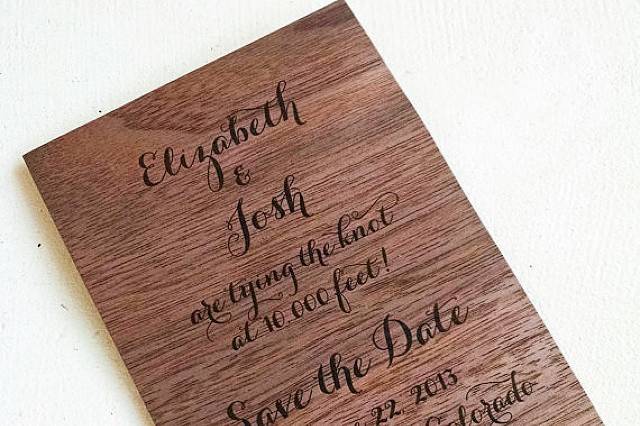 Elizabeth
&
Josh
are tying the knot
at 10,000 feet!
Save the Date
22, 2013
Colorado